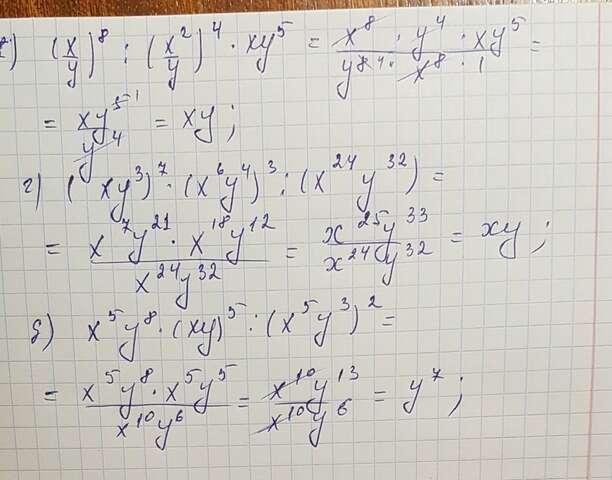 (x/y)⁸ : (x²/y)⁴ · xy⁵ = (x⁸ · y⁴ · xy⁵)/(y⁸ ⁴ · x⁸ · 1) =
= xy⁵ ¹/y⁴ = xy ;
г) (xy³)⁷ · (x⁶y⁴)³ : (x²⁴y³²) =
= (x⁷y²¹ · x¹⁸y¹²)/(x²⁴y³²) = x²⁵y³³/x²⁴y³² = xy ;
д) x⁵y⁸ · (xy)⁵ : (x⁵y³)² =
= (x⁵y⁸ · x⁵y⁵)/(x¹⁰y⁶) = x¹⁰y¹³/x¹⁰y⁶ = y⁷ ;